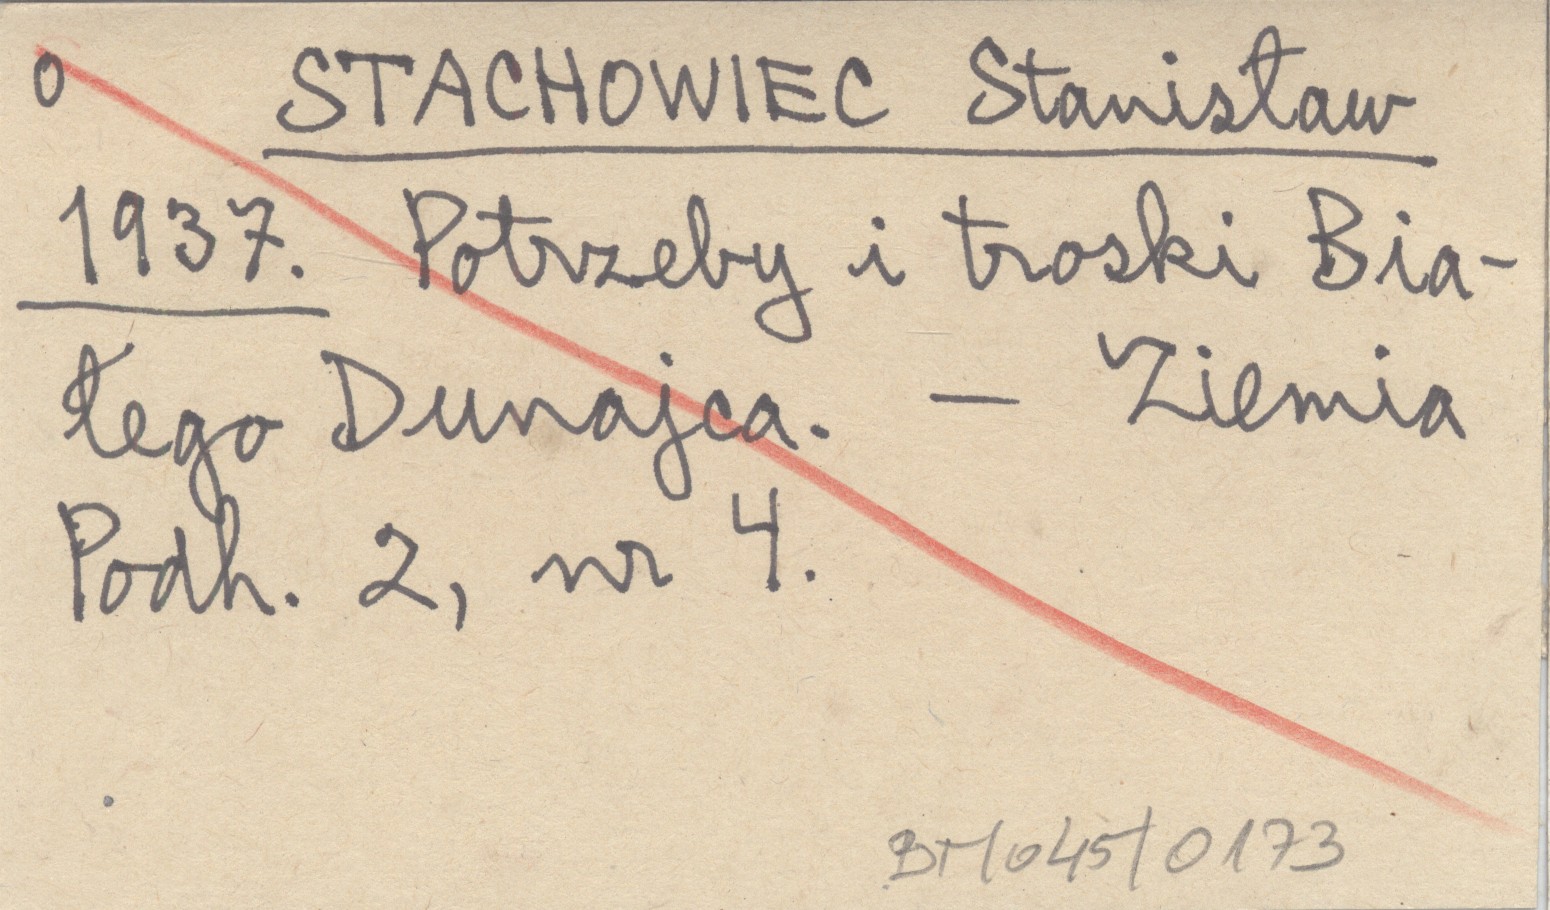 o STACHOWIEC Stanisław
1937. Potrzeby i troski Bia-
łego Dunajca. — Ziemia
Podh. 2, nr 4.
BT/045/0173